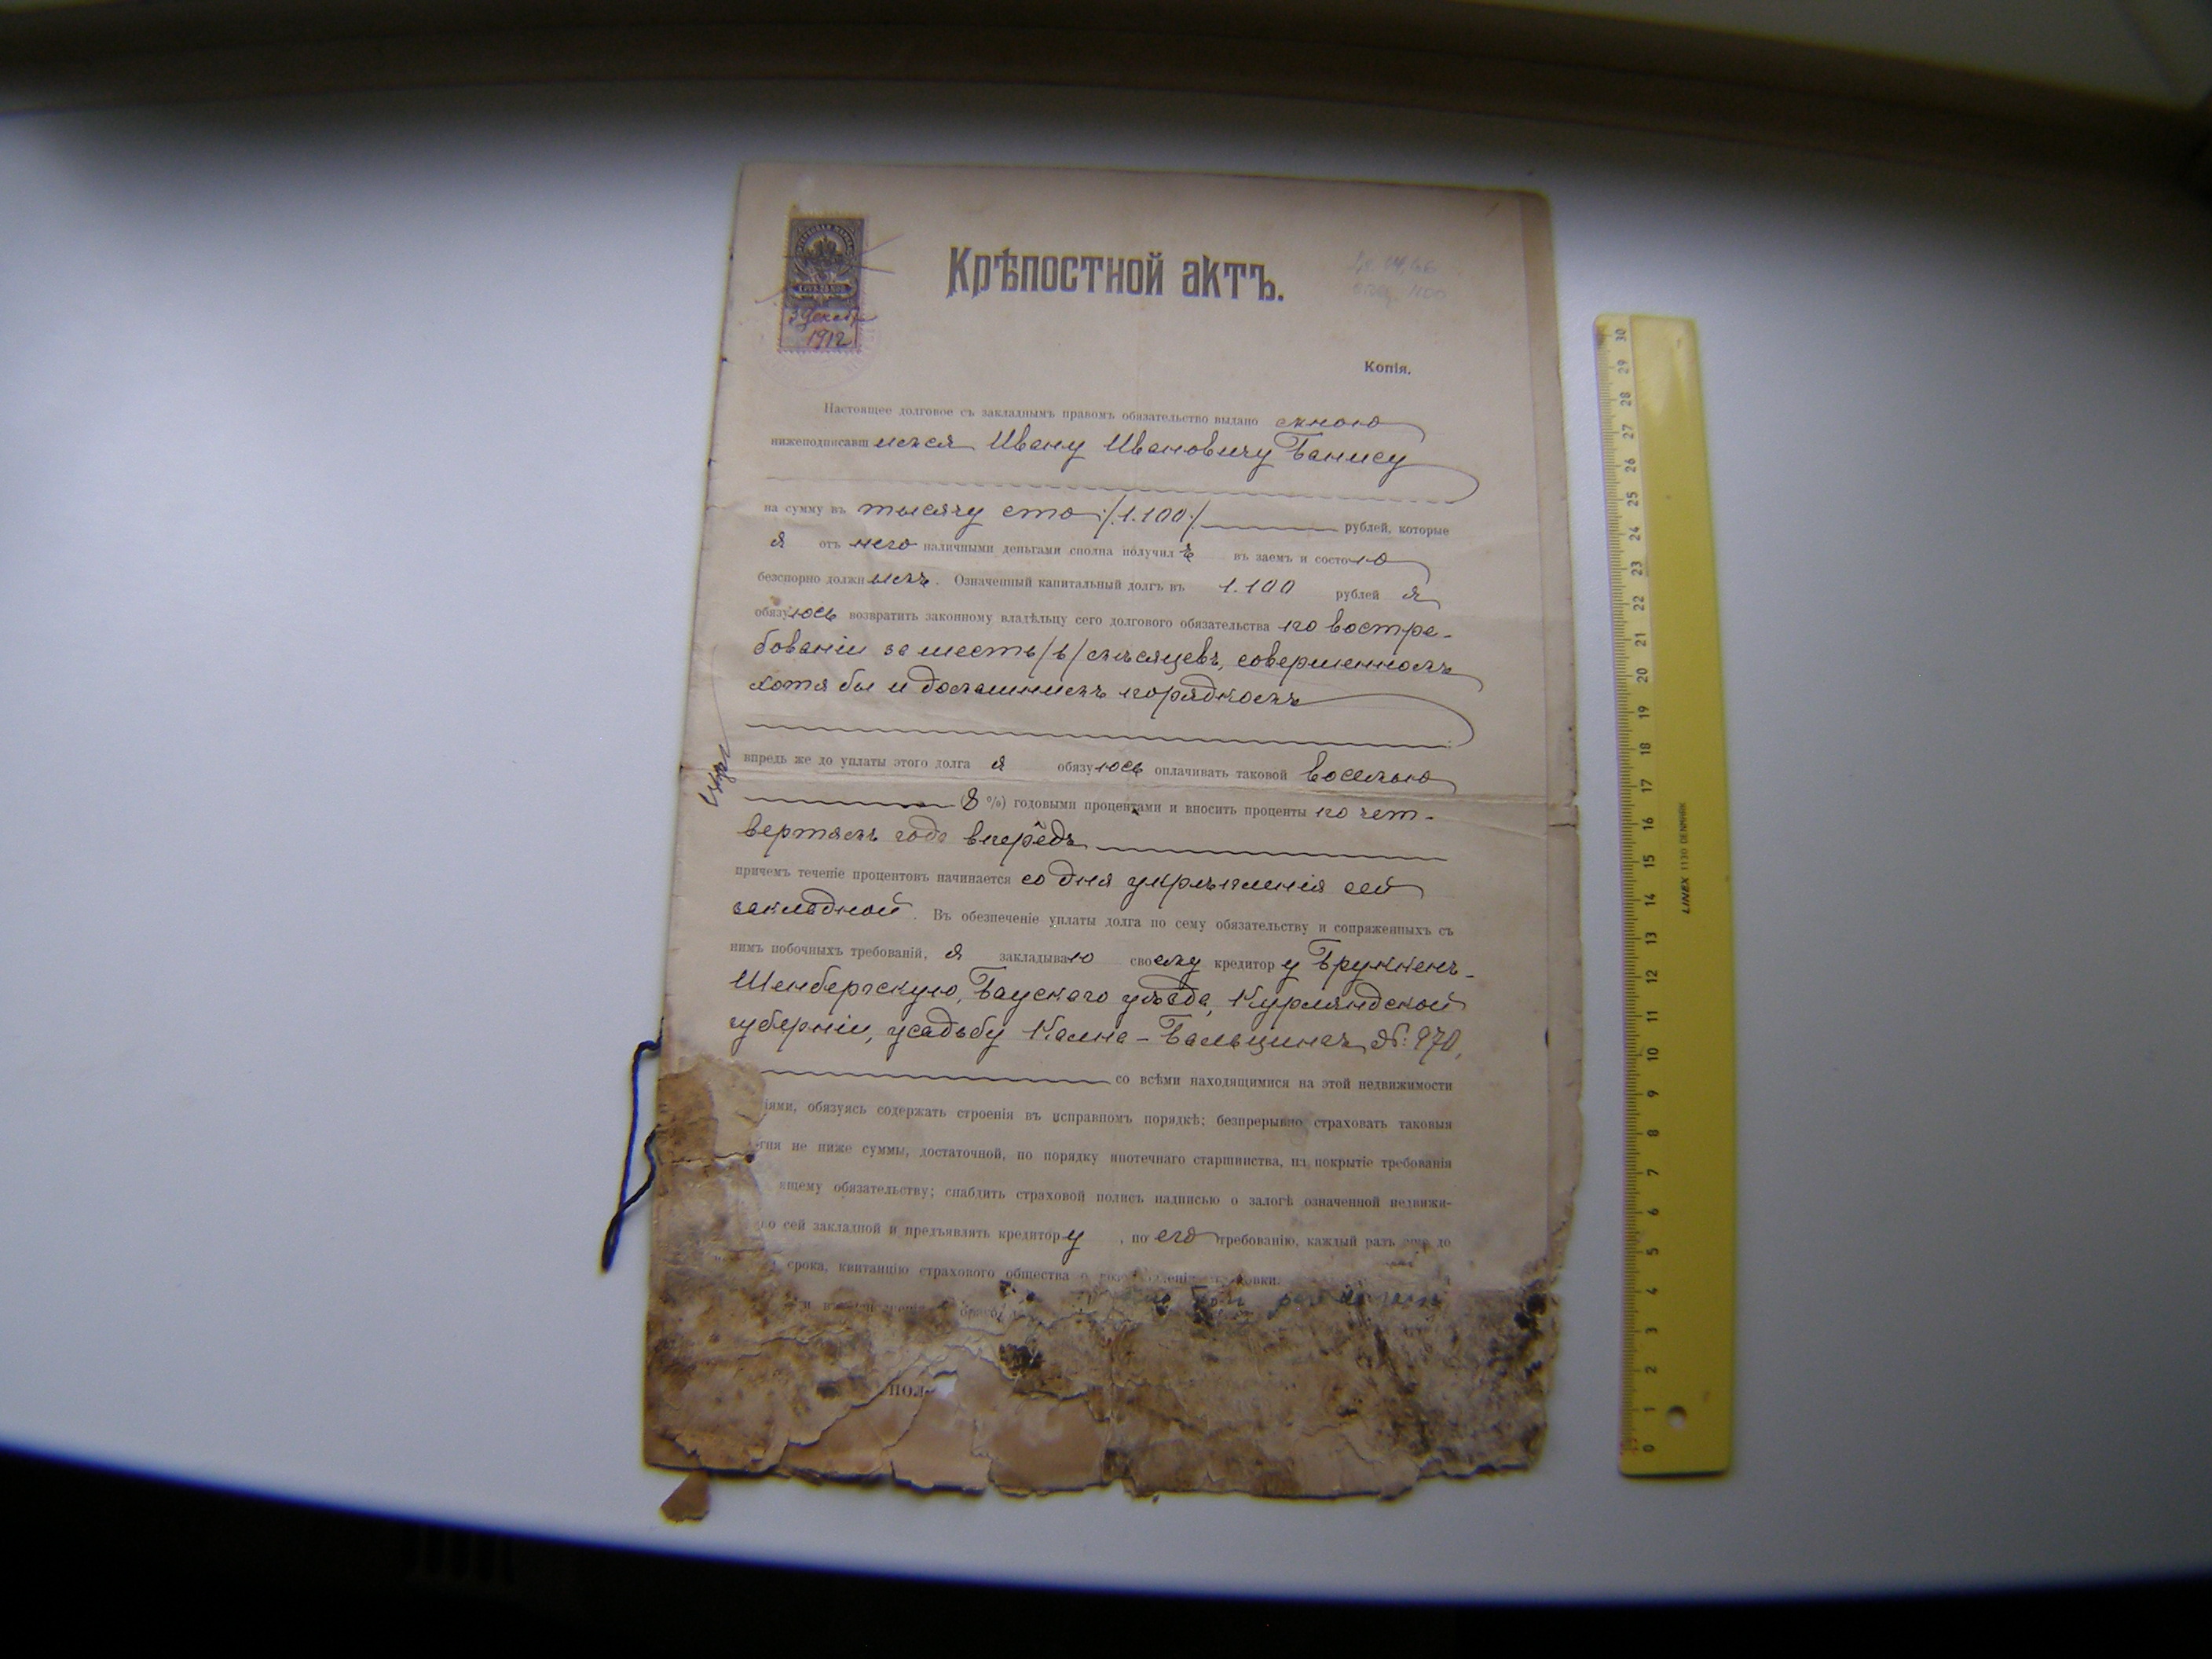 3 Декаб.
1912
Крѣпостной актъ.
Копія.
Настоящее долговое съ закладнымъ правомъ обязательство выдано мною
нижеподписавшимся Ивану Ивановичу Банису
на сумму въ тысячу сто /1.100/ рублей, которые
я отъ него наличными деньгами сполна получилъ въ заемъ и состою
безспорно должнымъ. Означенный капитальный долгъ въ 1.100 рублей я
обязуюсь возвратить законному владѣльцу сего долгового обязательства по востре-
бованіи за шесть /6/ мѣсяцевъ, совершенномъ
хотя бы и домашнимъ порядкомъ
впредь же до уплаты этого долга я обязуюсь оплачивать таковой восемью
(8 %) годовыми процентами и вносить проценты по чет-
вертямъ года впередъ
причемъ теченіе процентовъ начинается со дня укрѣпленія сей
закладной. Въ обезпеченіе уплаты долга по сему обязательству и сопряженныхъ съ
нимъ побочныхъ требованій, я закладываю своему кредитору Брукенъ-
Шенбергскую, Бауского уѣзда, Курляндской
губерніи, усадьбу Калка-Бальцинахъ №: 970,
со всѣми находящимися на этой недвижимости
іями, обязуясь содержать строенія въ исправномъ порядкѣ; безпрерывно страховать таковыя
гня не ниже суммы, достаточной, по порядку ипотечнаго старшинства, на покрытіе требованія
ящему обязательству; снабдить страховой полисъ надписью о залогѣ означенной недвижи-
по сей закладной и предъявлять кредитору, по его требованію, каждый разъ еще до
срока, квитанцію страхового общества о
пол
LINEX 1130 DENMARK
30 29 28 27 26 25 24 23 22 21 20 19 18 17 16 15 14 13 12 11 10 9 8 7 6 5 4 3 2 1 0